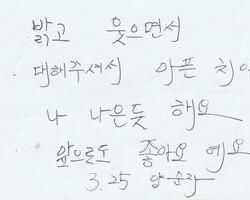 밝고 웃으면서
대해주셔서 아픈 치아
나 나은듯 해요
앞으로도 좋아요 예요
3.25